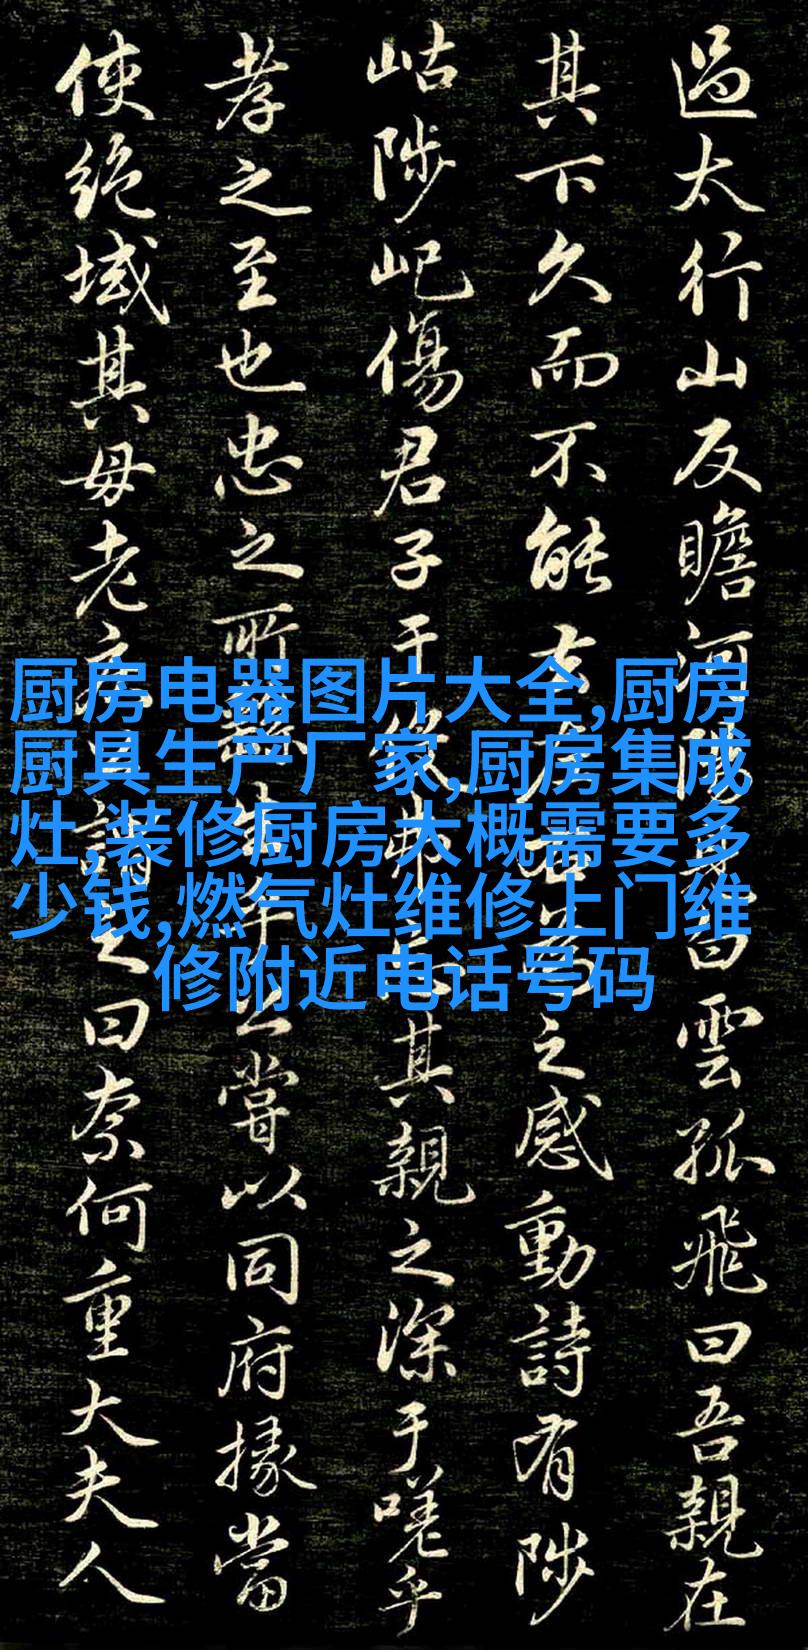 過太行山反瞻河陽白雲孤飛曰吾親在
其下久而不能去為之感動詩有陟
岵陟屺傷君子于役弗其親之深于嗟乎
孝之至也忠之所繇生乎公嘗以同府掾當
使絕域其母老疾公謂之曰奈何重大夫人
厨房电器图片大全,厨房
厨具生产厂家,厨房集成
灶,装修厨房大概需要多
少钱,燃气灶维修上门维
修附近电话号码